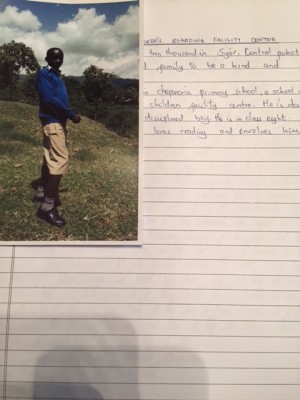 BOARDING FACILITY CENTRE
two thousand in Sigor, Central pokot
family to be a kind and
in cheprona primary school, a school
children facility centre. He is
disciplined boy. He is in class eight.
loves reading and involves him